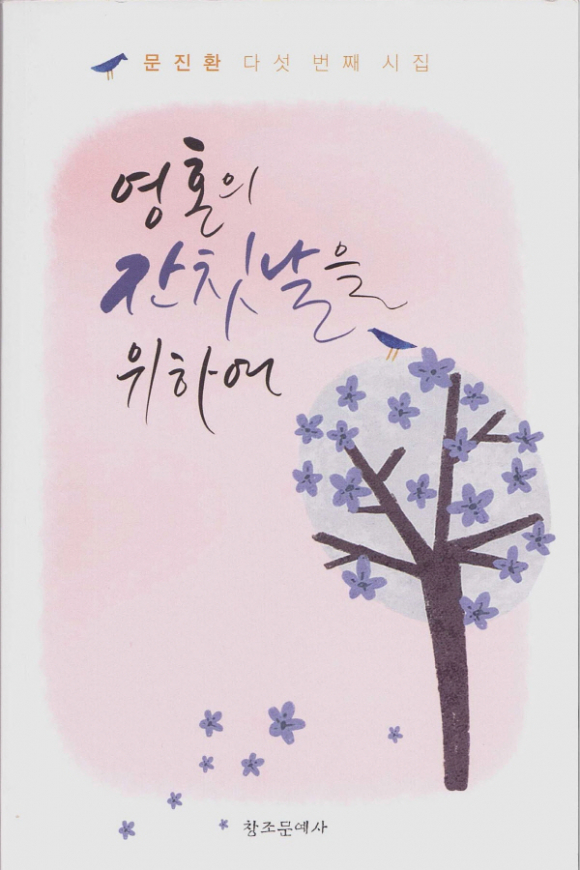 문진환 다섯 번째 시집
영혼의
잔칫날을
위하여
창조문예사